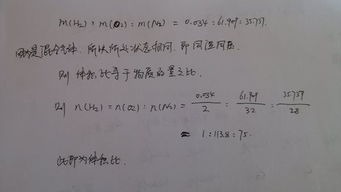 m(H₂) : m(O₂) : m(N₂) = 0.034 : 61.909 : 35.759.
因为是混合气体,所以所处状态相同,即同温同压
则 体积比等于物质的量之比.
则 n(H₂) : n(O₂) : n(N₂) = 0.034/2 : 61.909/32 : 35.759/28
≈ 1 : 113.8 : 75.
此即为体积比.